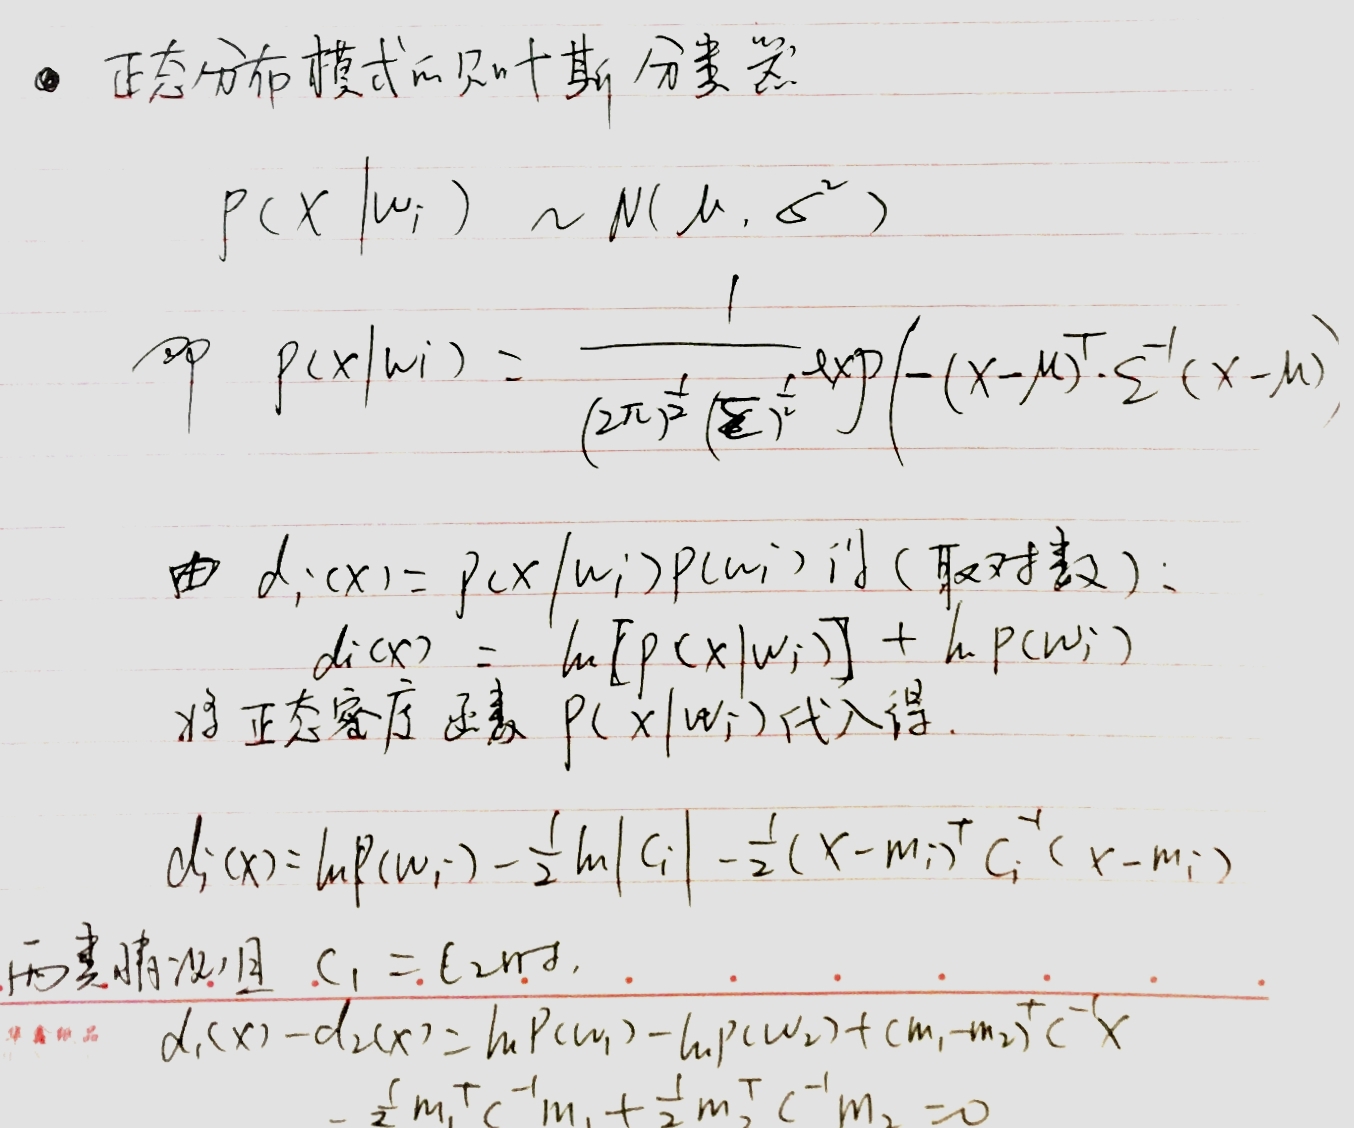 正态分布模式的贝叶斯分类器
P(X|wi) ~ N(μ, σ²)
即 p(x|wi) = 1/((2π)^{1/2} (Σ)^{1/2}) exp(-(x-μ)^T·Σ^{-1}(x-μ))
由 di(x) = p(x|wi)p(wi) 得(取对数):
di(x) = ln[p(x|wi)] + ln p(wi)
将正态密度函数 p(x|wi)代入得.
di(x) = lnp(wi) - 1/2 ln|Ci| - 1/2 (x-mi)^T Ci^{-1} (x-mi)
两类情况,且 C1 = C2时,
d1(x) - d2(x) = lnP(w1) - lnp(w2) + (m1-m2)^T C^{-1}x
- 1/2 m1^T C^{-1} m1 + 1/2 m2^T C^{-1} m2 = 0